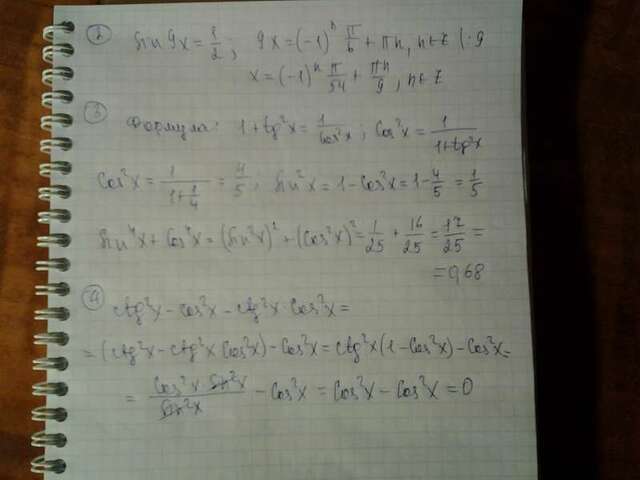 ② sin 9x = 1/2; 9x = (-1)ⁿ π/6 + πn, n∈Z |:9
x = (-1)ⁿ π/54 + πn/9, n∈Z
③ Формула: 1+tg²x = 1/cos²x; cos²x = 1/(1+tg²x)
cos²x = 1/(1+1/4) = 4/5; sin²x = 1-cos²x = 1-4/5 = 1/5
sin⁴x + cos⁴x = (sin²x)² + (cos²x)² = 1/25 + 16/25 = 17/25 =
= 0,68
④ ctg²x - cos²x - ctg²x cos²x =
= (ctg²x - ctg²x cos²x) - cos²x = ctg²x (1-cos²x) - cos²x =
= cos²x sin²x / sin²x - cos²x = cos²x - cos²x = 0